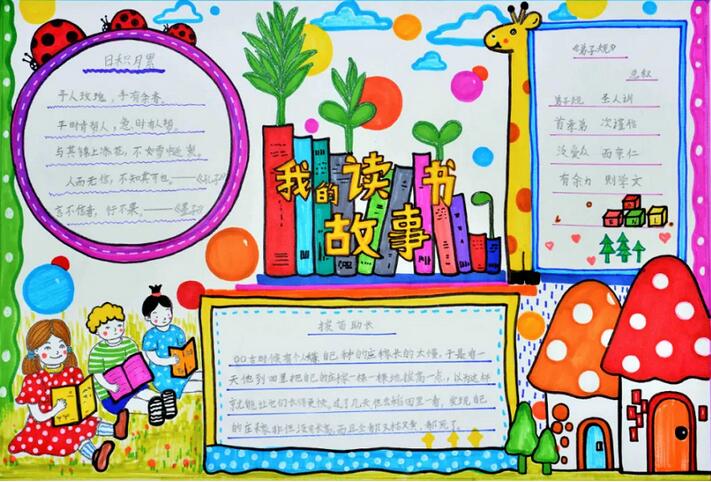 日积月累
予人玫瑰，手有余香。
平时肯帮人，急时有人帮。
与其锦上添花，不如雪中送炭。
人而无信，不知其可也。——《孔子》
言不信者，行不果。——《墨子》
我的读书
故事
《弟子规》
总叙
弟子规 圣人训
首孝弟 次谨信
泛爱众 而亲仁
有余力 则学文
拔苗助长
古时候有个人嫌自己种的庄稼长的太慢，于是有一
天他到田里把自己的庄稼一棵一棵地拔高一点，以为这样
就能让他们长得更快。过了几天他去稻田里一看，发现自己
的庄稼非但没有长高，而且全部又枯又黄，都死了。